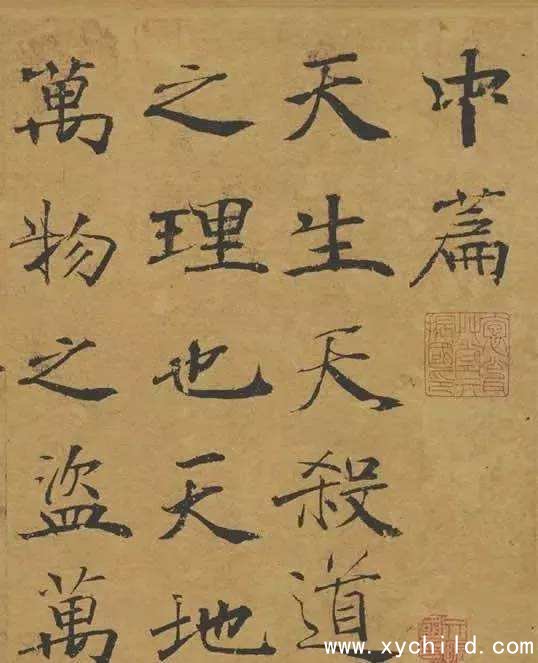 中篇
天生天殺道
之理也天地
萬物之盜萬
www.xychild.com